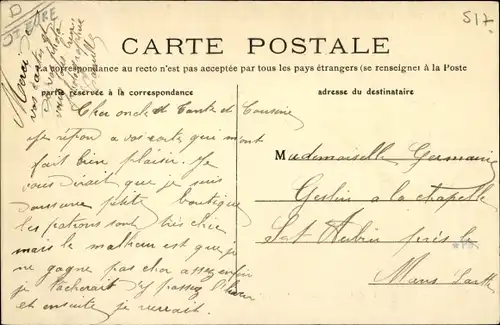 D
St EBRE
517
CARTE POSTALE
La correspondance au recto n'est pas acceptée par tous les pays étrangers (se renseigner à la Poste
partie réservée à la correspondance
adresse du destinataire
Merci de
vos cartes et
Cher oncle et Tante et Cousine
Je répon a vos carte qui m'ont
fait bien plaisir. Je
vous dirait que je suis
dans une petite boutique
les patrons sont très chic
mais le malheur est que je
ne gagne pas cher assez enfin
je tacherait d'y passez l'hiver
et ensuite je verrait.
Mademoiselle Germaine
Geslin a la chapelle
Sat Aubin près le
Mans Sarthe